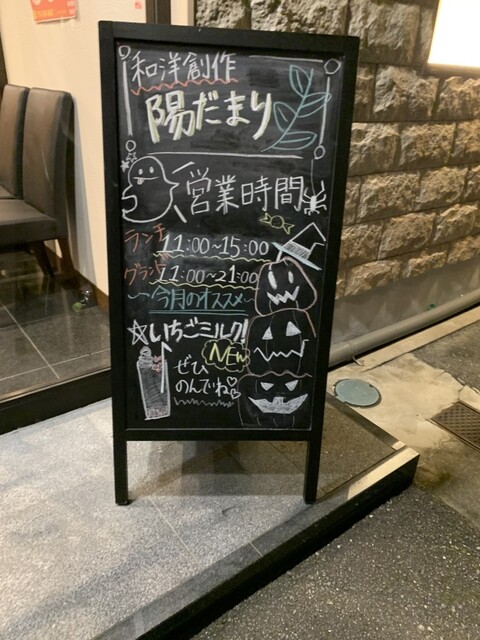 和洋創作
陽だまり
営業時間
ランチ 11:00~15:00
グランド 11:00~21:00
~今月のオススメ~
☆いちごミルク!
NEW
ぜひ
のんでね♡